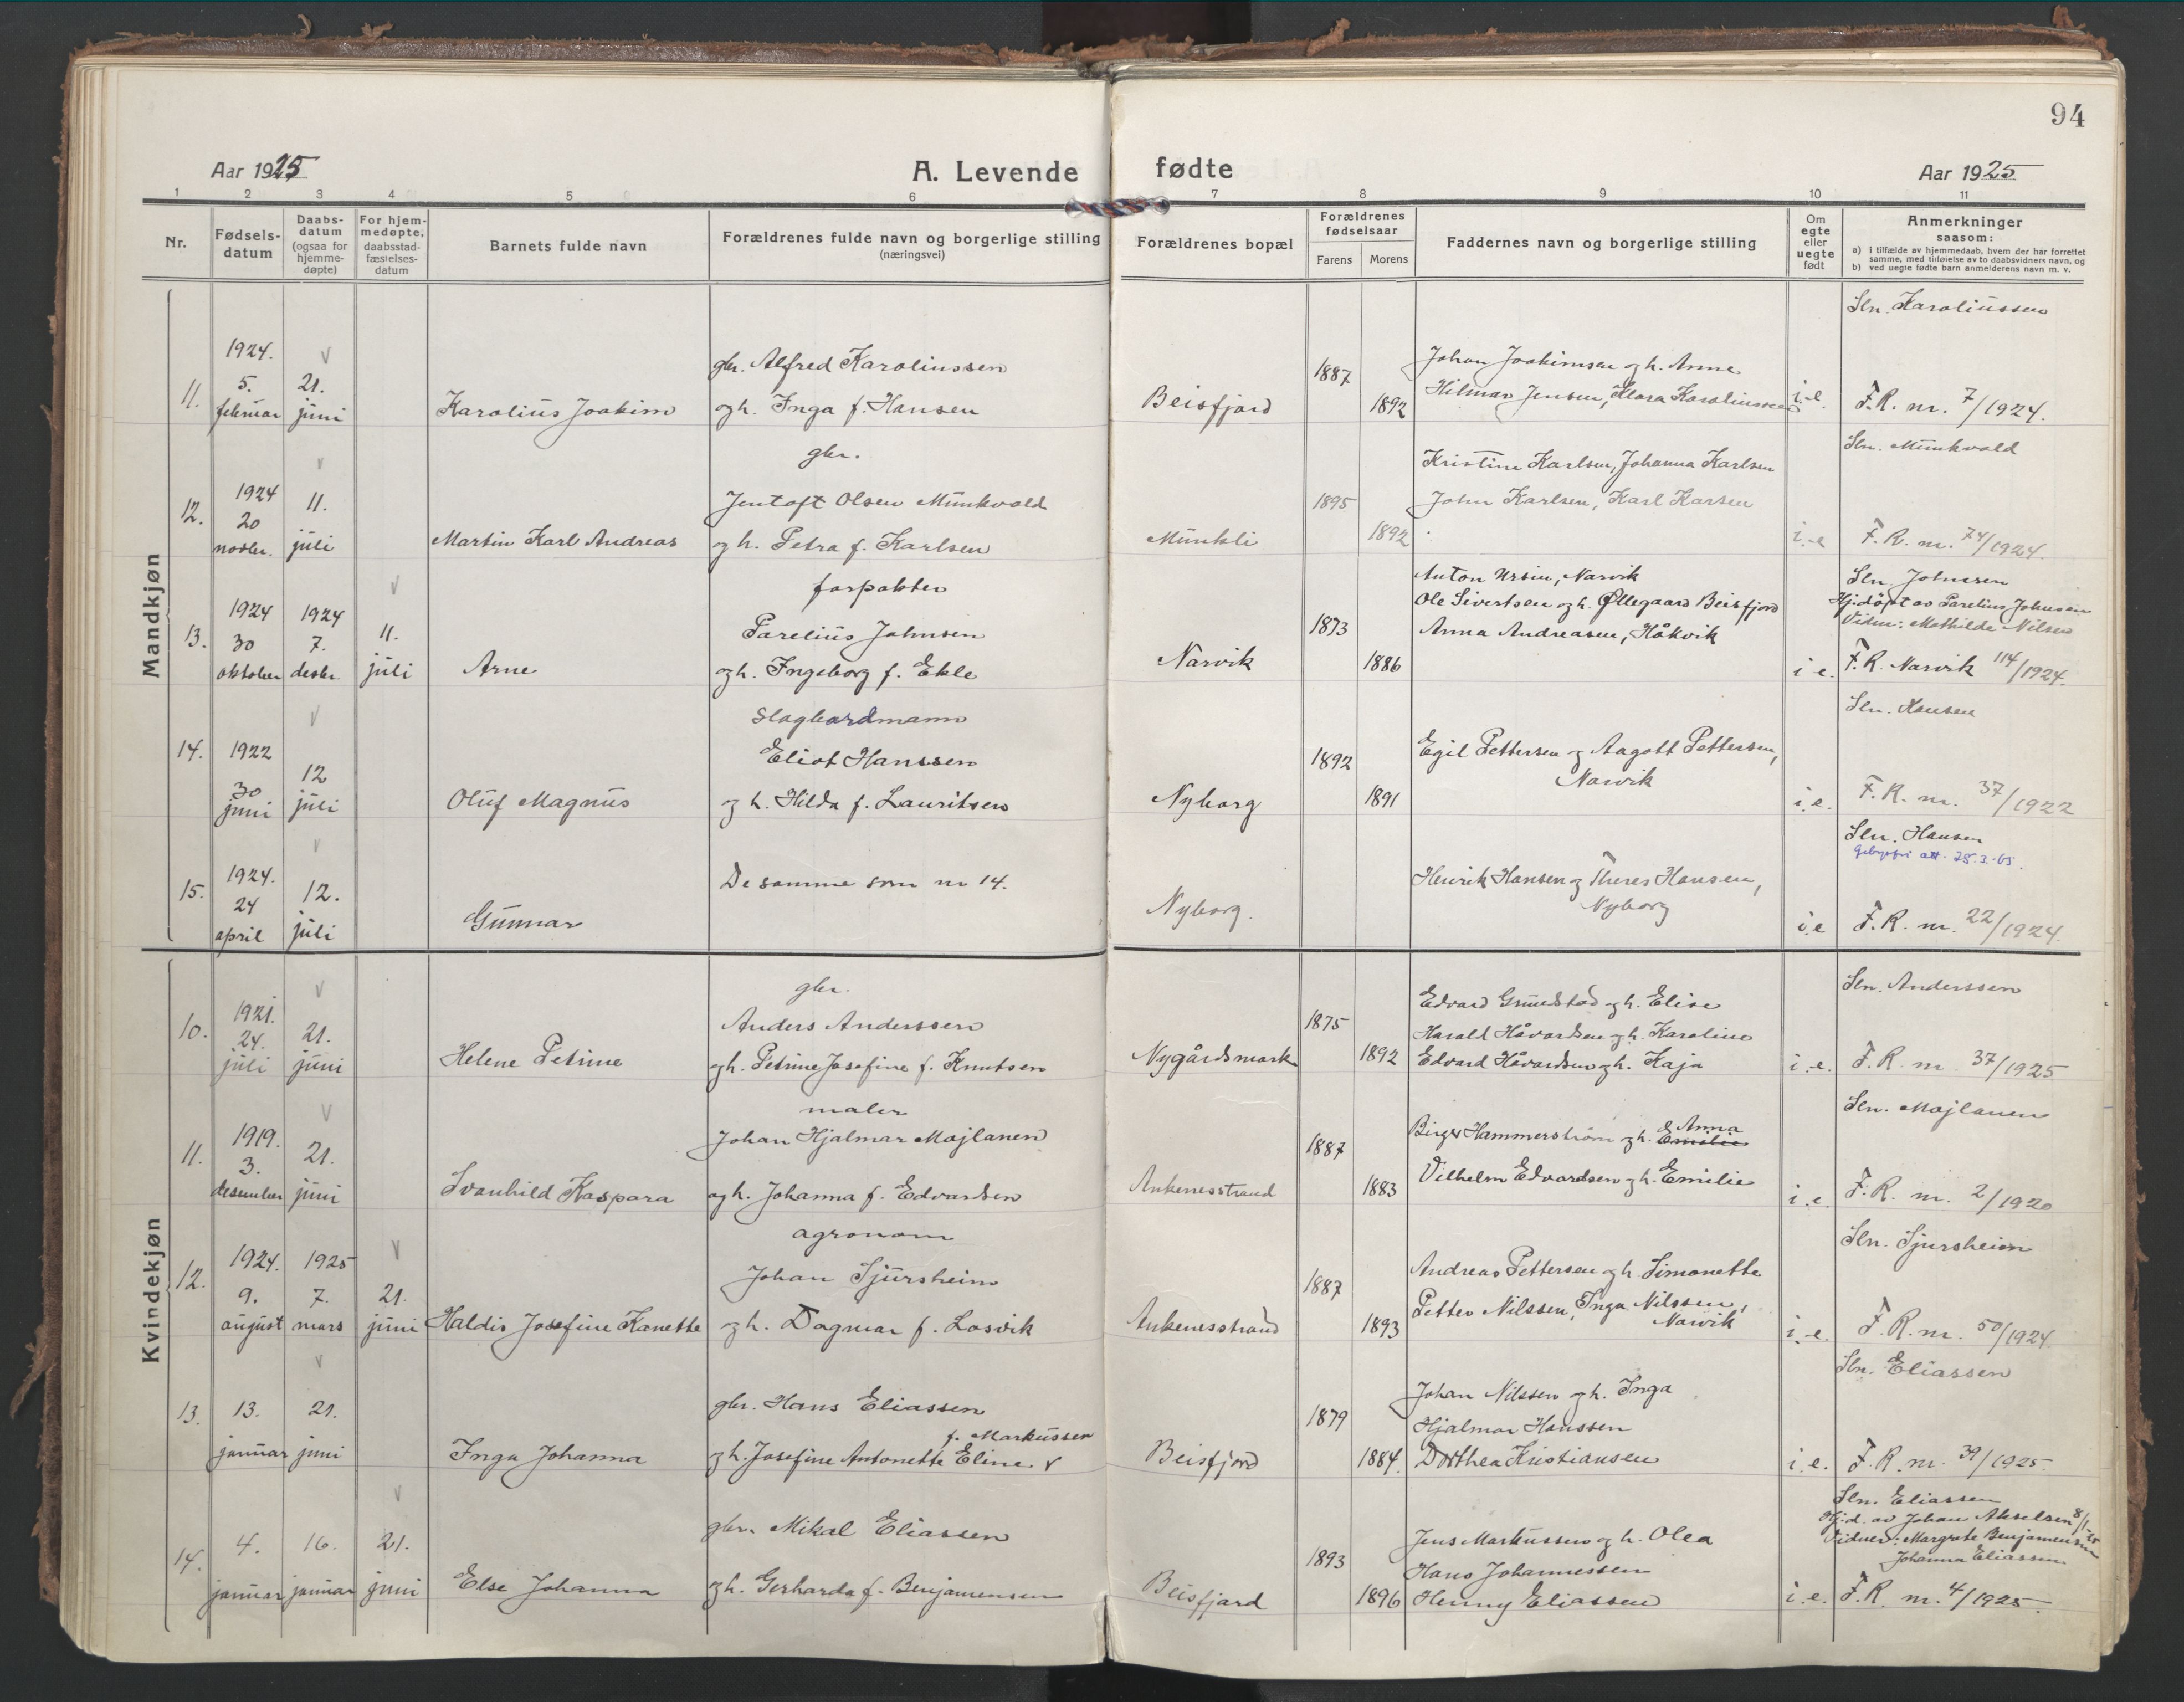 94
Aar 1925
A. Levende fødte
Aar 1925
1 2 3 4 5 6 7 8 9 10 11
Nr.
Fødsels-
datum
Daabs-
datum
(ogsaa for
hjemme-
døpte)
For hjem-
medøpte,
daabsstad-
fæstelses-
datum
Barnets fulde navn
Forældrenes fulde navn og borgerlige stilling
(næringsvei)
Forældrenes bopæl
Forældrenes
fødselsaar
Farens Morens
Faddernes navn og borgerlige stilling
Om
egte
eller
uegte
født
Anmerkninger
saasom:
a) i tilfælde av hjemmedaab, hvem der har forrettet
samme, med tilføielse av to daabsvidners navn, og
b) ved uegte fødte barn anmelderens navn m. v.
Mandkjøn
11.
1924.
5.
februar
21.
juni
Karolius Joakim
gbr. Alfred Karoliussen
og h. Inga f. Hansen
Beisfjord
1887
1892
Johan Joakimsen og h. Anne
Hilmar Jensen, Klara Karoliussen
i.e.
Sln. Karoliussen
F.R. nr. 7/1924.
12.
1924
20
novbr.
11.
juli
Martin Karl Andreas
gbr.
Jentoft Olsen Munkvold
og h. Petra f. Karlsen
Munkli
1895
1892
Kristine Karlsen, Johanna Karlsen
John Karlsen, Karl Karsen
i.e
Sln. Munkvold
F.R. nr. 74/1924.
13.
1924
30
oktober
1924
7.
desbr.
11.
juli
Arne
forpakter
Parelius Johnsen
og h. Ingeborg f. Ekle
Narvik
1873
1886
Anton Ursin, Narvik
Ole Sivertsen og h. Øllegaard Beisfjord
Anna Andreasen, Håkvik
i e.
Sln. Johnsen
Hjdøpt av Parelius Johnsen
Vidn: Mathilde Nilsen
F.R. Narvik 114/1924.
14.
1922
30
juni
12
juli
Oluf Magnus
Slagbordmann
Eliot Hanssen
og h. Hilda f. Lauritsen
Nyborg
1892
1891
Egil Pettersen og Aagott Pettersen,
Narvik
i.e.
Sln. Hansen
F.R. nr. 37/1922
15.
1924.
24
april
12.
juli
Gunnar
De samme som nr 14.
Nyborg.
Henrik Hansen og Theres Hansen,
Nyborg
i.e
Sln. Hansen
att. 25.3.65.
F.R. nr. 22/1924.
Kvindekjøn
10.
1921.
24.
juli
21.
juni
Helene Petrine
gbr.
Anders Anderssen
og h. Petrine Josefine f. Knutsen
Nygårdsmark
1875
1892
Edvard Grundstad og h. Elise
Harald Håvardsen og h. Karoline
Edvard Håvardsen og h. Kaja
i.e.
Sln. Anderssen
F.R. nr 37/1925
11.
1919.
3.
desember
21.
juni
Svanhild Kaspara
maler
Johan Hjalmar Majlanen
og h. Johanna f. Edvardsen
Ankenesstrand
1887
1883
Birger Hammerstrøm og h. Emilie Anna
Vilhelm Edvardsen og h. Emilie
i.e
Sln. Majlanen
F.R. nr. 2/1920
12.
1924.
9.
august
1925
7.
mars
21.
juni
Haldis Josefine Kanette
agronom
Johan Sjursheim
og h. Dagmar f. Losvik
Ankenesstrand
1887
1893
Andreas Pettersen og h. Simonette
Petter Nilssen, Inga Nilssen,
Narvik
i.e.
Sln. Sjursheim
F.R. nr. 50/1924.
13.
13.
januar
21.
juni
Inga Johanna
gbr. Hans Eliassen
f. Markussen
og h. Josefine Antonette Eline v
Beisfjord
1879
1884.
Johan Nilssen og h. Inga
Hjalmar Hanssen
Dorthea Kristiansen
i.e.
Sln. Eliassen
F.R. nr. 39/1925.
14.
4.
januar
16.
januar
21.
juni
Else Johanna
gbr. Mikal Eliassen
og h. Gerharda f. Benjamensen
Beisfjord
1893
1896
Jens Markussen og h. Olea
Hans Johannessen
Henny Eliassen
i.e.
Sln. Eliassen
Hjd. av Johan Akselsen 8/1-25
Vidner: Margrete Benjamensen
Johanna Eliassen
F.R. nr. 4/1925.